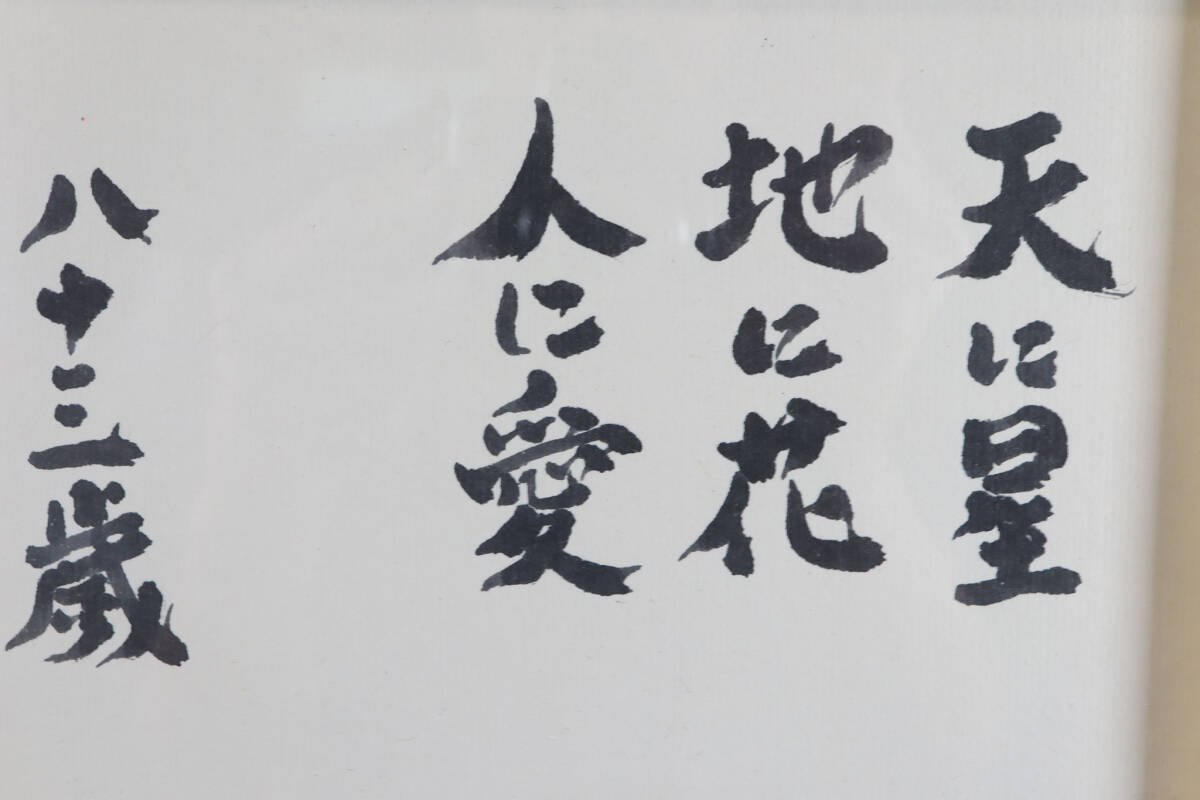 天に星
地に花
人に愛
八十三歳